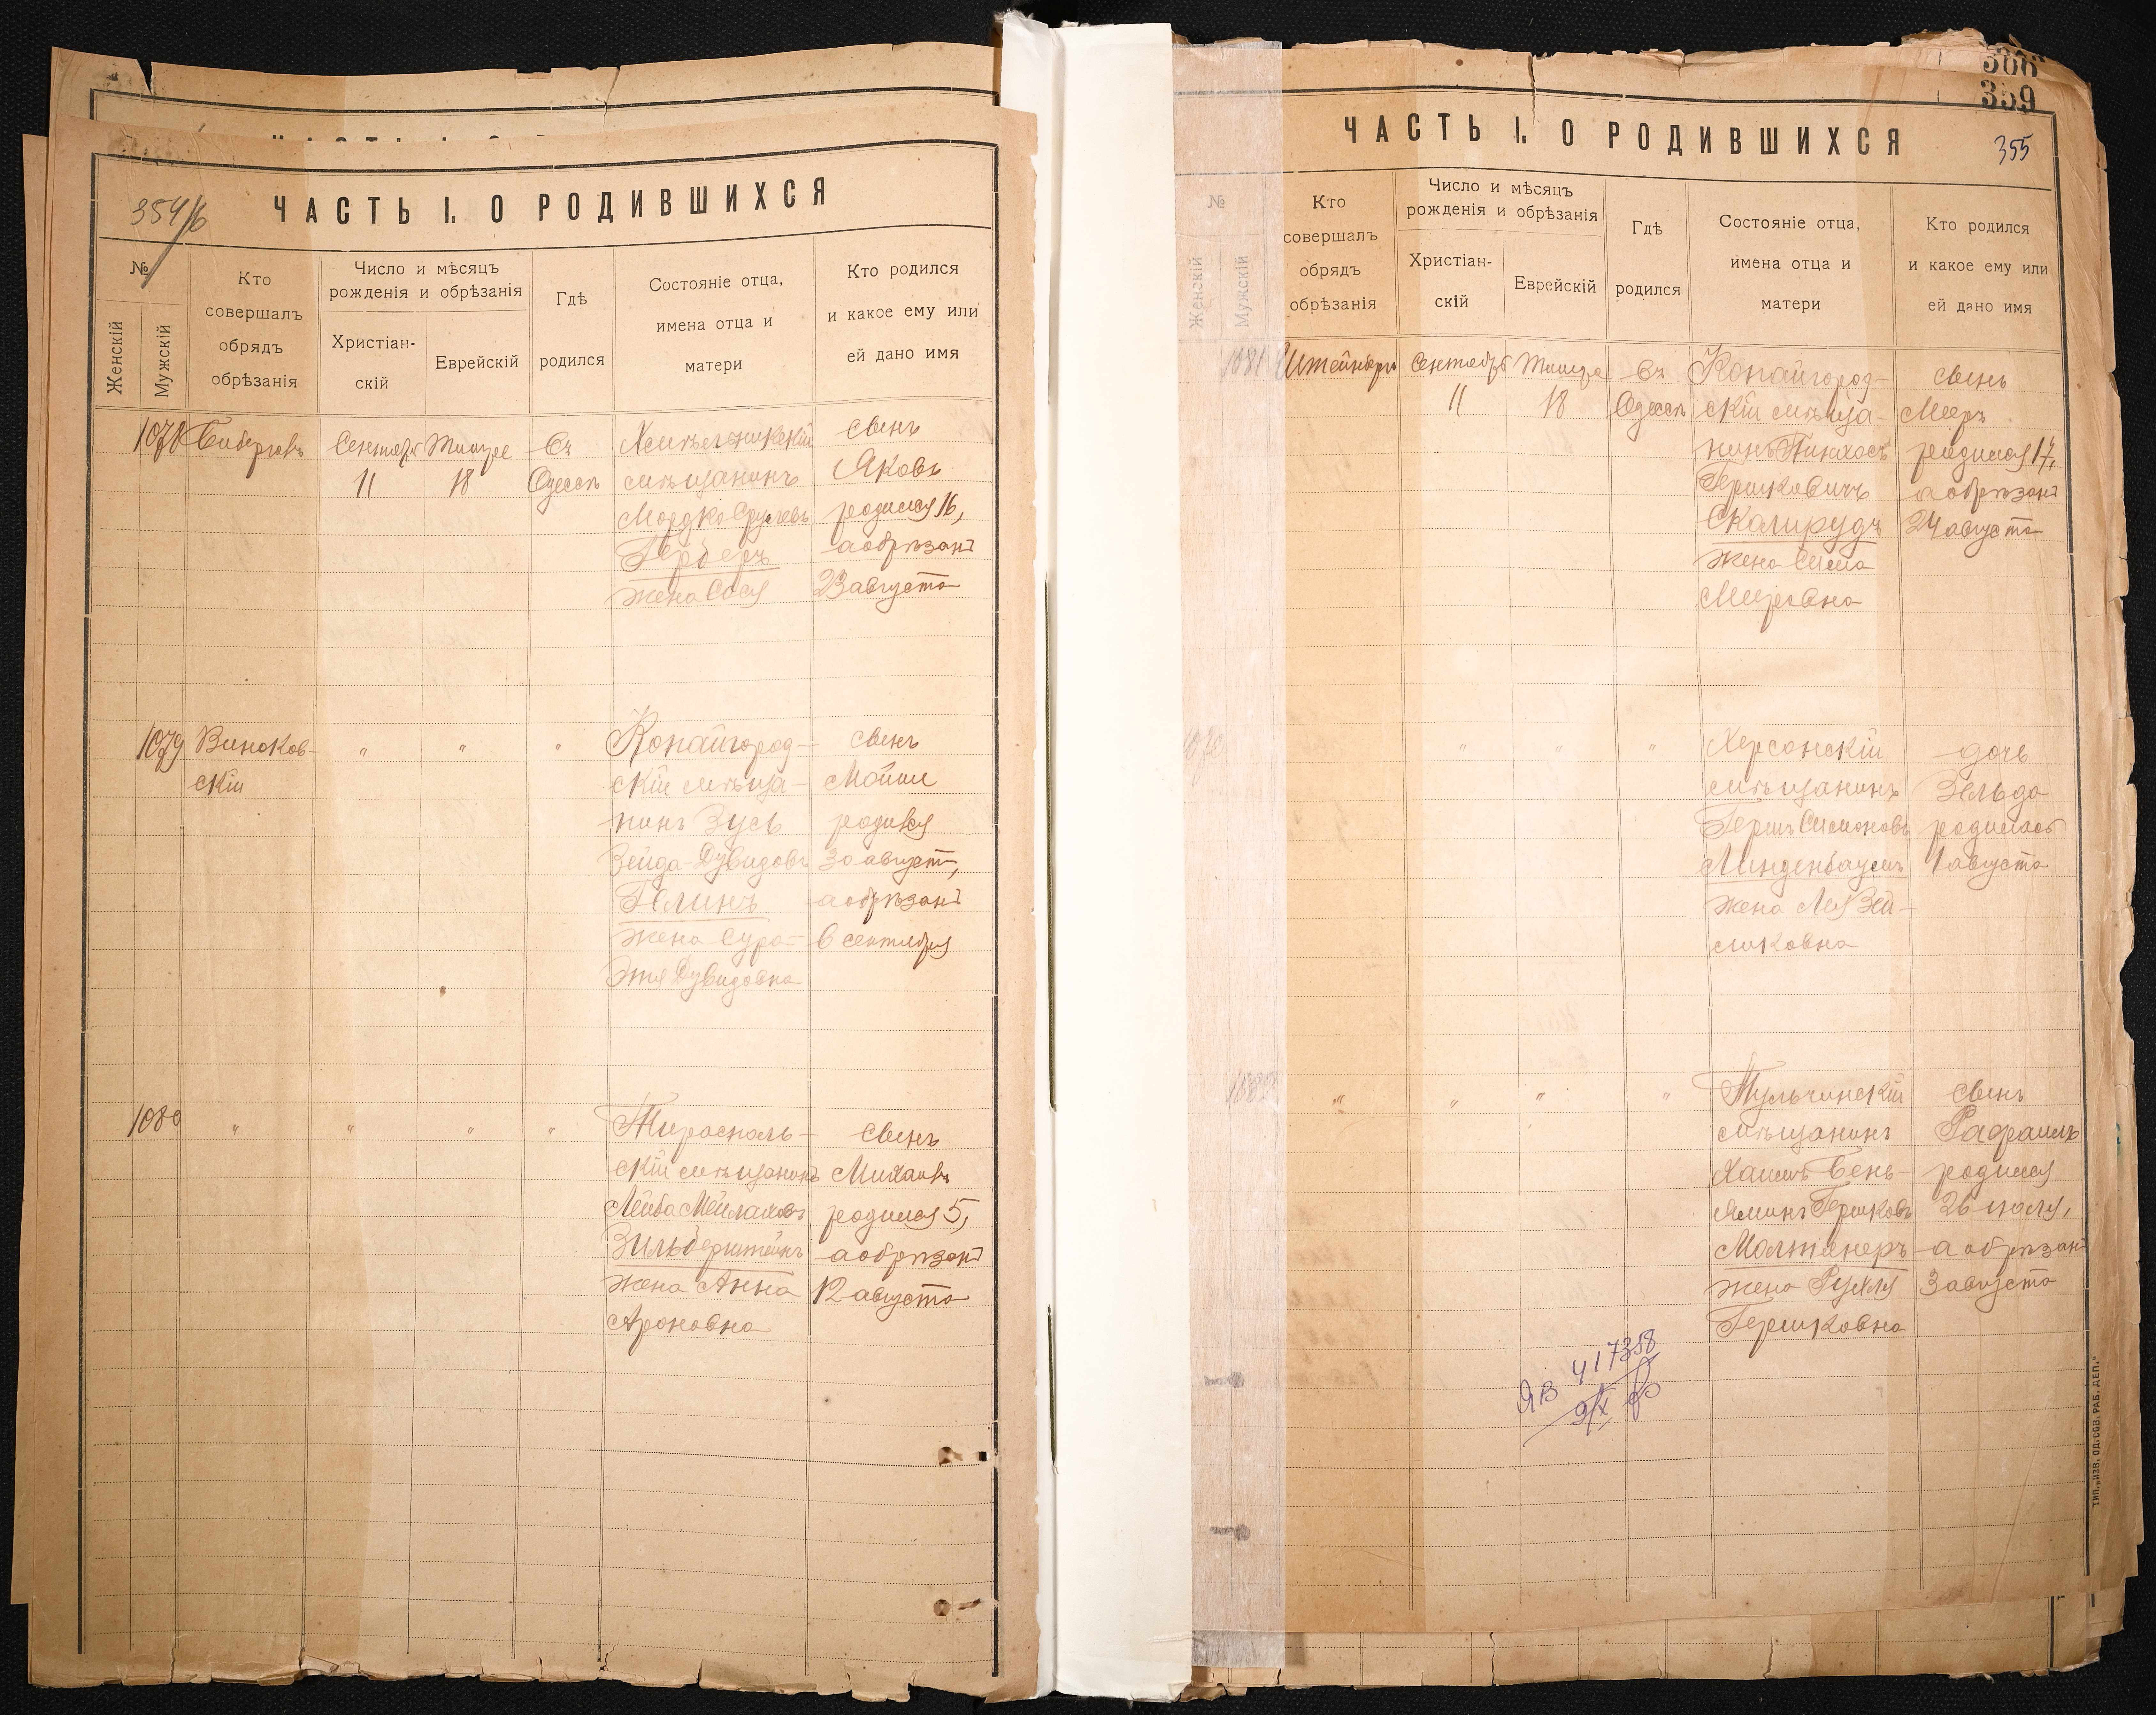 354/б
ЧАСТЬ I. О РОДИВШИХСЯ
№
Женскій
Мужскій
Кто
совершалъ
обрядъ
обрѣзанія
Число и мѣсяцъ
рожденія и обрѣзанія
Христіан-
скій
Еврейскій
Гдѣ
родился
Состояніе отца,
имена отца и
матери
Кто родился
и какое ему или
ей дано имя
1078
Сентябр
11
Тишре
18
Въ
Одессѣ
мѣщанинъ
Мордко Срулевъ
Герберъ
жена Сося
сынъ
Яковъ
родился 16,
а обрѣзанъ
23 августа
1079
Виноков-
скій
"
"
"
Копайгород-
скій мѣща-
нинъ Зусь
Зейда-Дувидовъ
Гелинъ
жена Сура-
Этя Дувидовна
сынъ
Мойше
родился
30 август,
а обрѣзанъ
6 сентября
1080
"
"
"
"
Тирасполь-
скій мѣщанинъ
Лейба Мейлаховъ
Зильберштейнъ
жена Анна
Ароновна
сынъ
Михаилъ
родился 5,
а обрѣзанъ
12 августа
300
359
355
ЧАСТЬ I. О РОДИВШИХСЯ
№
Женскій
Мужскій
Кто
совершалъ
обрядъ
обрѣзанія
Число и мѣсяцъ
рожденія и обрѣзанія
Христіан-
скій
Еврейскій
Гдѣ
родился
Состояніе отца,
имена отца и
матери
Кто родился
и какое ему или
ей дано имя
1081
Штейнбергъ
Сентябр
11
Тишре
18
Въ
Одессѣ
Копайгород-
скій мѣща-
нинъ Пинхосъ
Гершковичъ
Скалирудъ
жена Сима
Меировна
сынъ
Меер
родился 17,
а обрѣзанъ
24 августа
"
"
"
Херсонскій
мѣщанинъ
Гершъ Симоновъ
Линденбаумъ
жена Лея Зей-
ликовна
дочь
Зельда
родилась
1 августа
1082
"
"
"
"
Тульчинскій
мѣщанинъ
Хаимъ Бень-
яминъ Гершковъ
Молтянеръ
жена Рухля
Гершковна
сынъ
Рафаилъ
родился
26 июля,
а обрѣзанъ
3 августа
ЯВ 417358
9/X
ТИП. „ИЗВ. ОД. СОВ. РАБ. ДЕП."